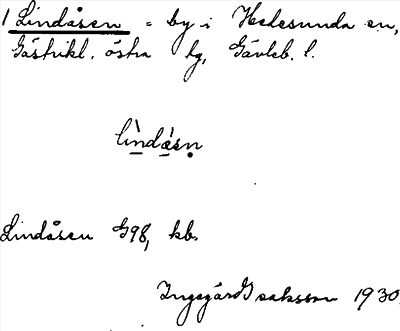 1 Lindåsen = by i Hedesunda sn,
Gästrikl. östra tg, Gävleb. l.
lìndá̀sn
Lindåsen G98, kb.
Ingegärd Isaksson 1930